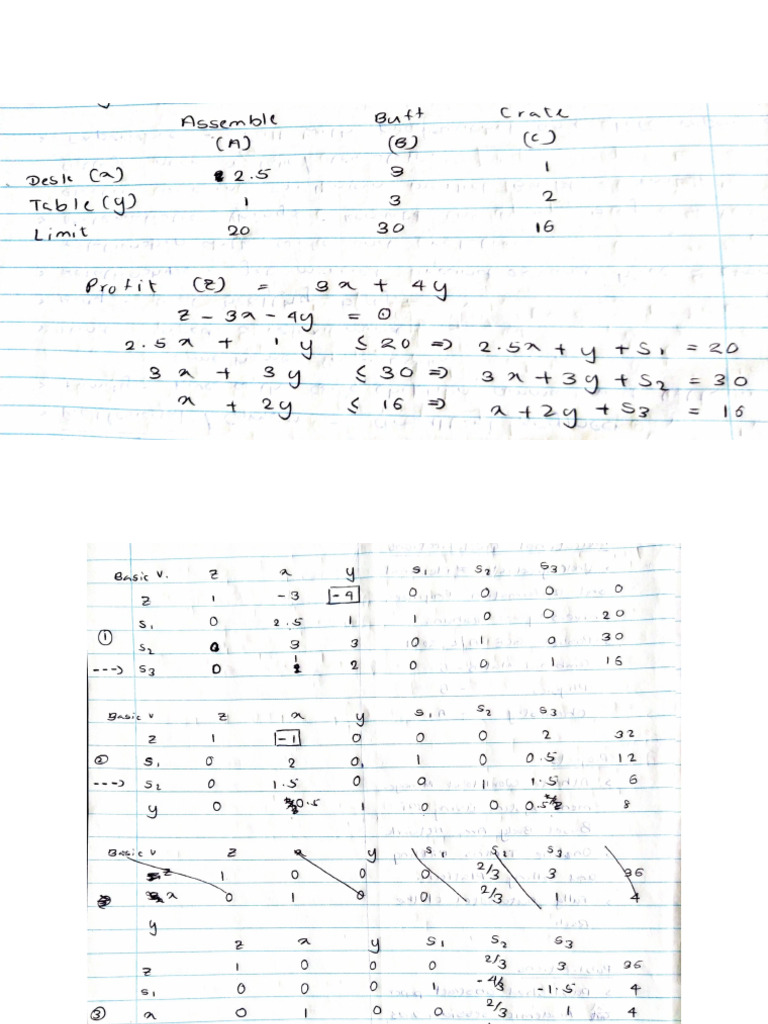 Assemble Buff Crate
(A) (B) (C)
Desk (x) 2.5 3 1
Table (y) 1 3 2
Limit 20 30 16
Profit (z) = 3x + 4y
z - 3x - 4y = 0
2.5x + 1y ≤ 20 => 2.5x + y + S1 = 20
3x + 3y ≤ 30 => 3x + 3y + S2 = 30
x + 2y ≤ 16 => x + 2y + S3 = 16
Basic V. z x y S1 S2 S3
z 1 -3 -4 0 0 0 0
S1 0 2.5 1 1 0 0 20
①
S2 0 3 3 0 1 0 30
---> S3 0 1 2 0 0 1 16
Basic V z x y S1 S2 S3
z 1 -1 0 0 0 2 32
② S1 0 2 0 1 0 0.5 12
---> S2 0 1.5 0 0 1 1.5 6
y 0 0.5 1 0 0 0.5 8
Basic V z x y S1 S2 S3
z 1 0 0 0 2/3 3 36
x 0 1 0 0 2/3 1 4
y
z x y S1 S2 S3
z 1 0 0 0 2/3 3 36
S1 0 0 0 1 -4/3 -1.5 4
③ x 0 1 0 0 2/3 1 4